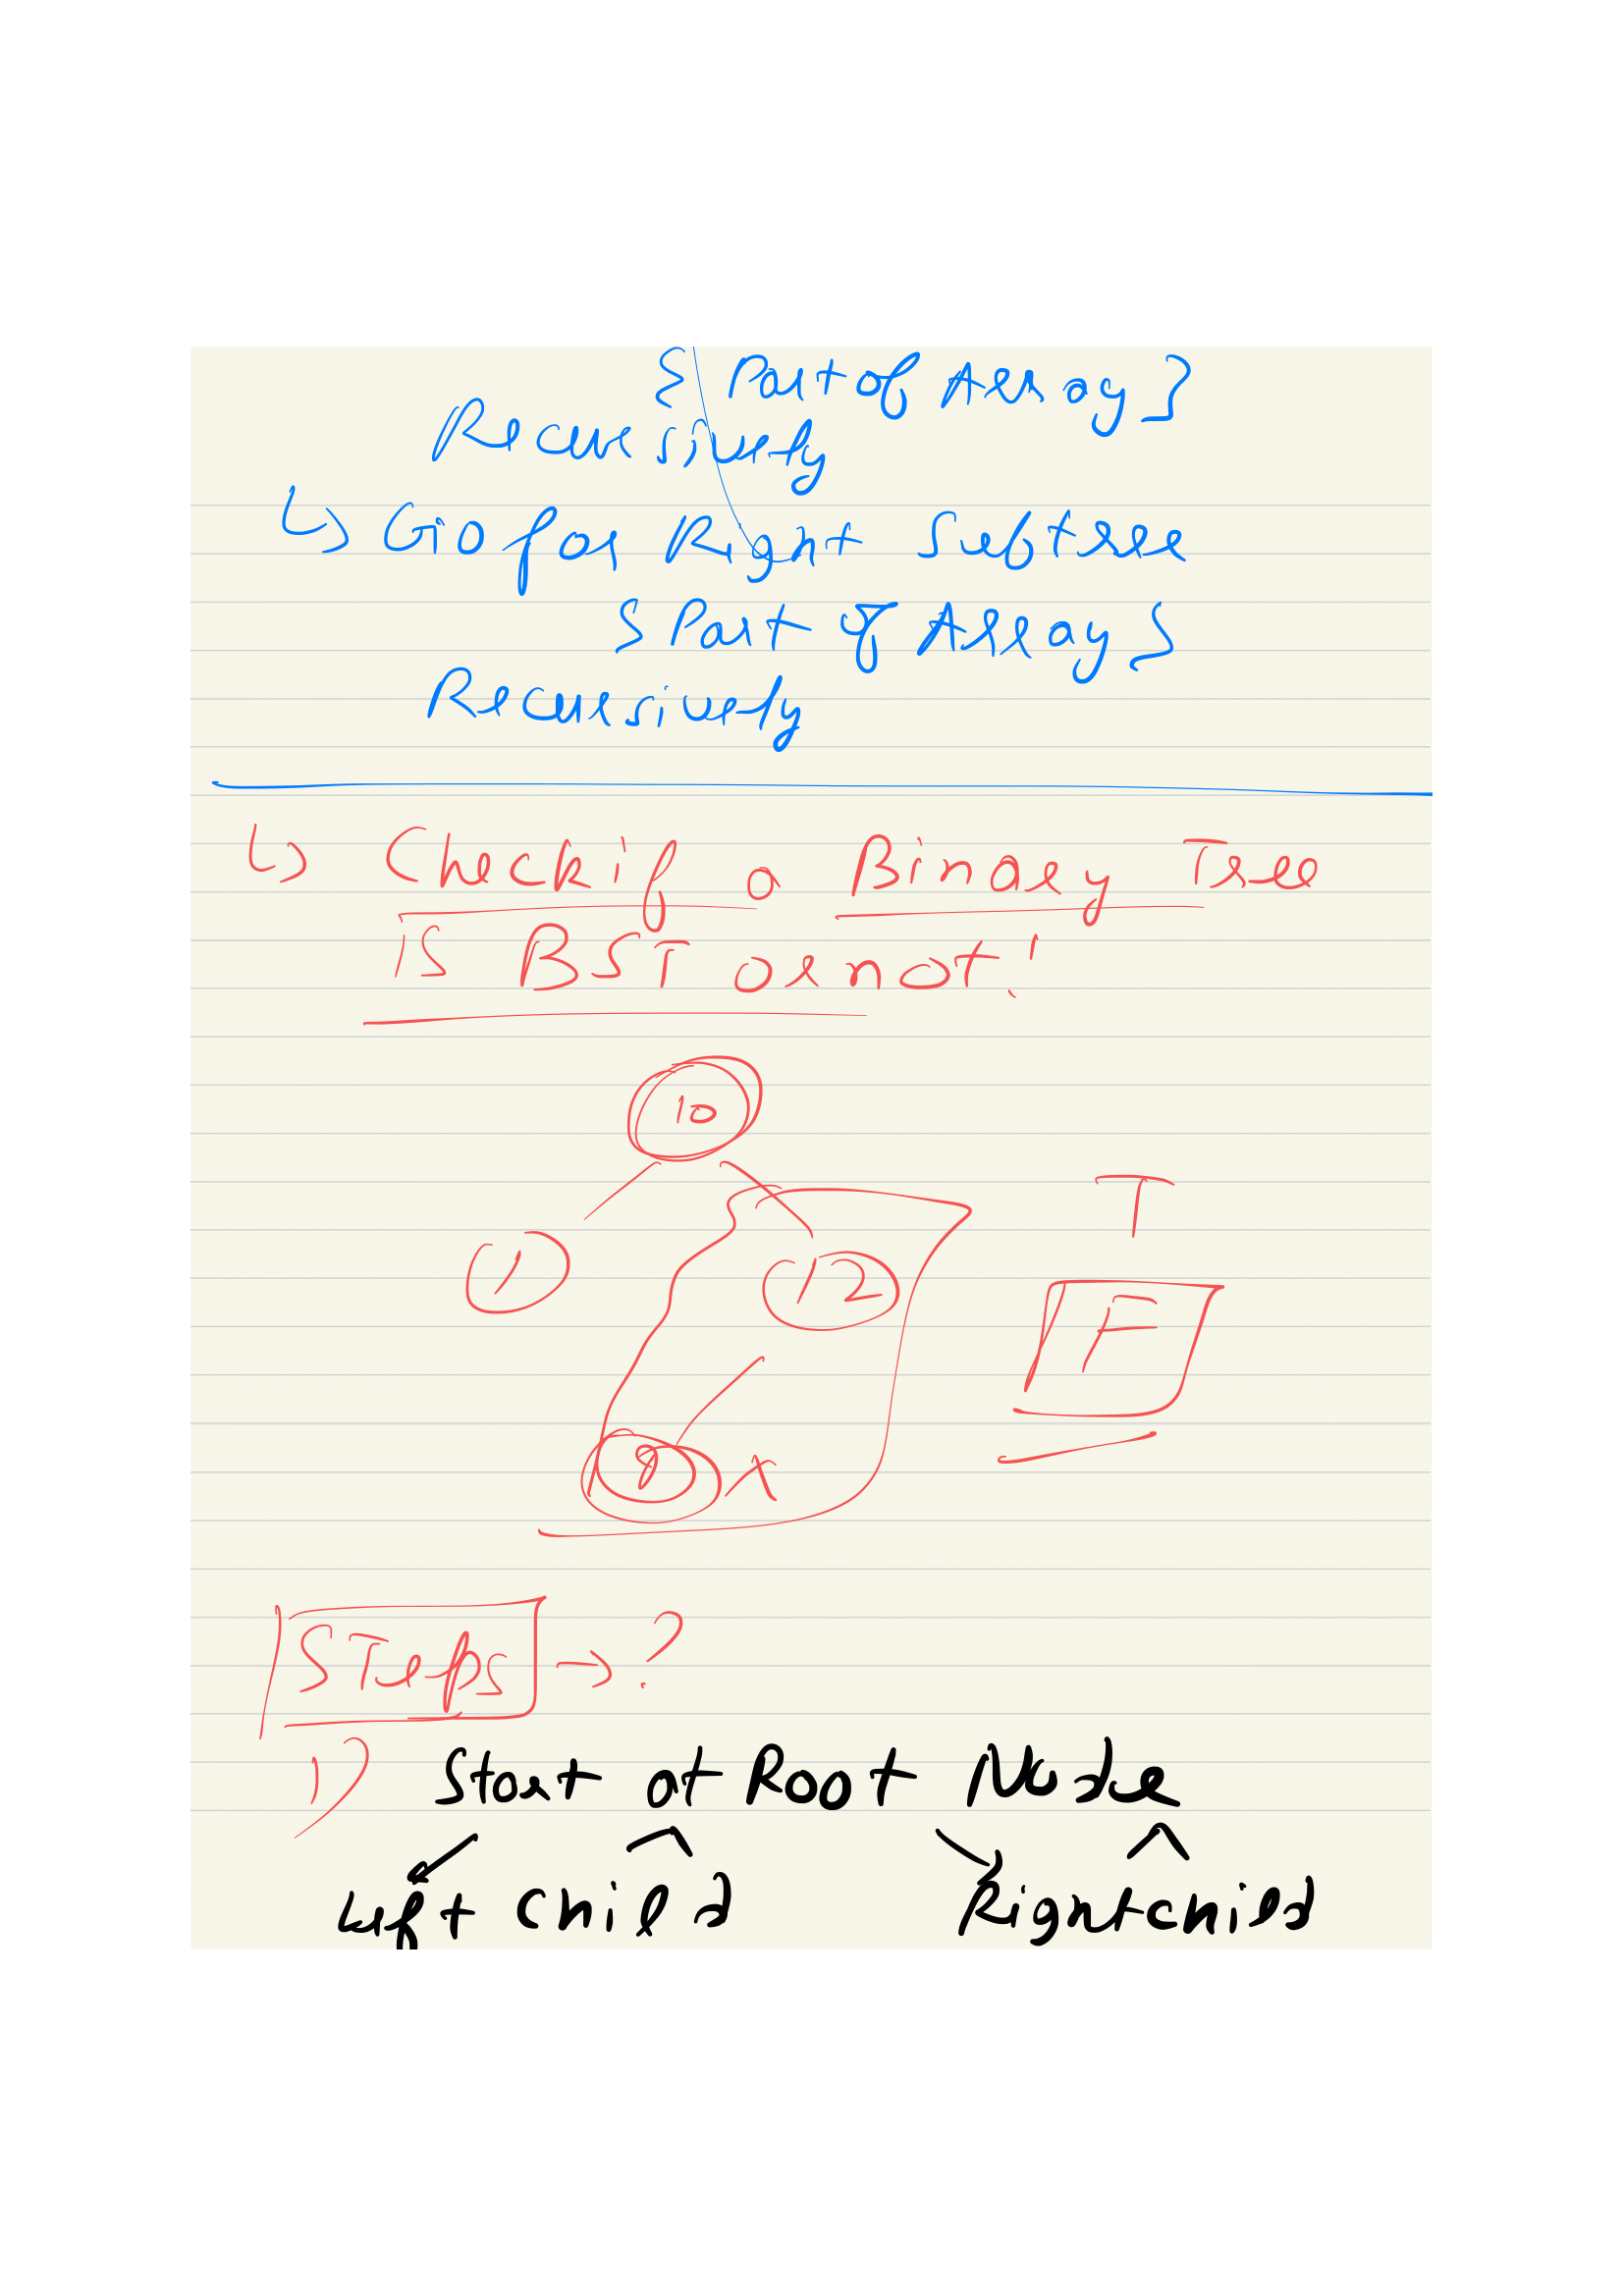 { Part of Array }
Recursively
↳ Go for Right Subtree
{ Part of Array }
Recursively
↳ Check if a Binary Tree
is BST or not!
10
1
12
T
F
9 x
Steps → ?
1) Start at Root Node
Left Child Right child